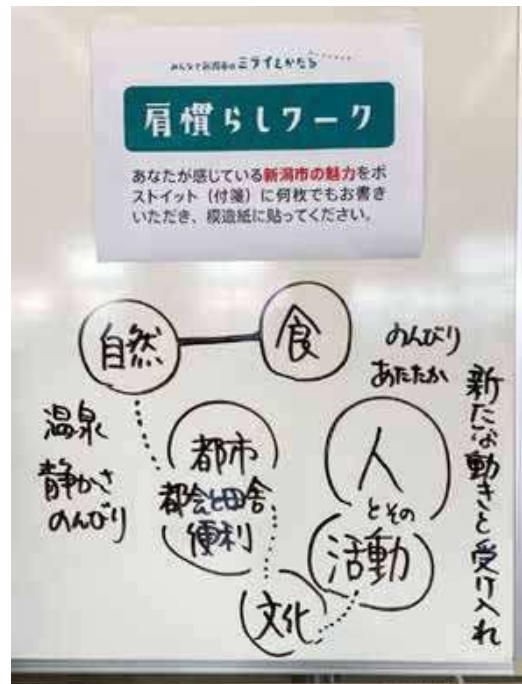 みんなで新潟市のミライをかたる
肩慣らしワーク
あなたが感じている新潟市の魅力をポ
ストイット（付箋）に何枚でもお書き
いただき、模造紙に貼ってください。
自然
食
のんびり
あたたか
新たな動きと受け入れ
温泉
静かさ
のんびり
都市
都会と田舎
便利
人
とその
活動
文化